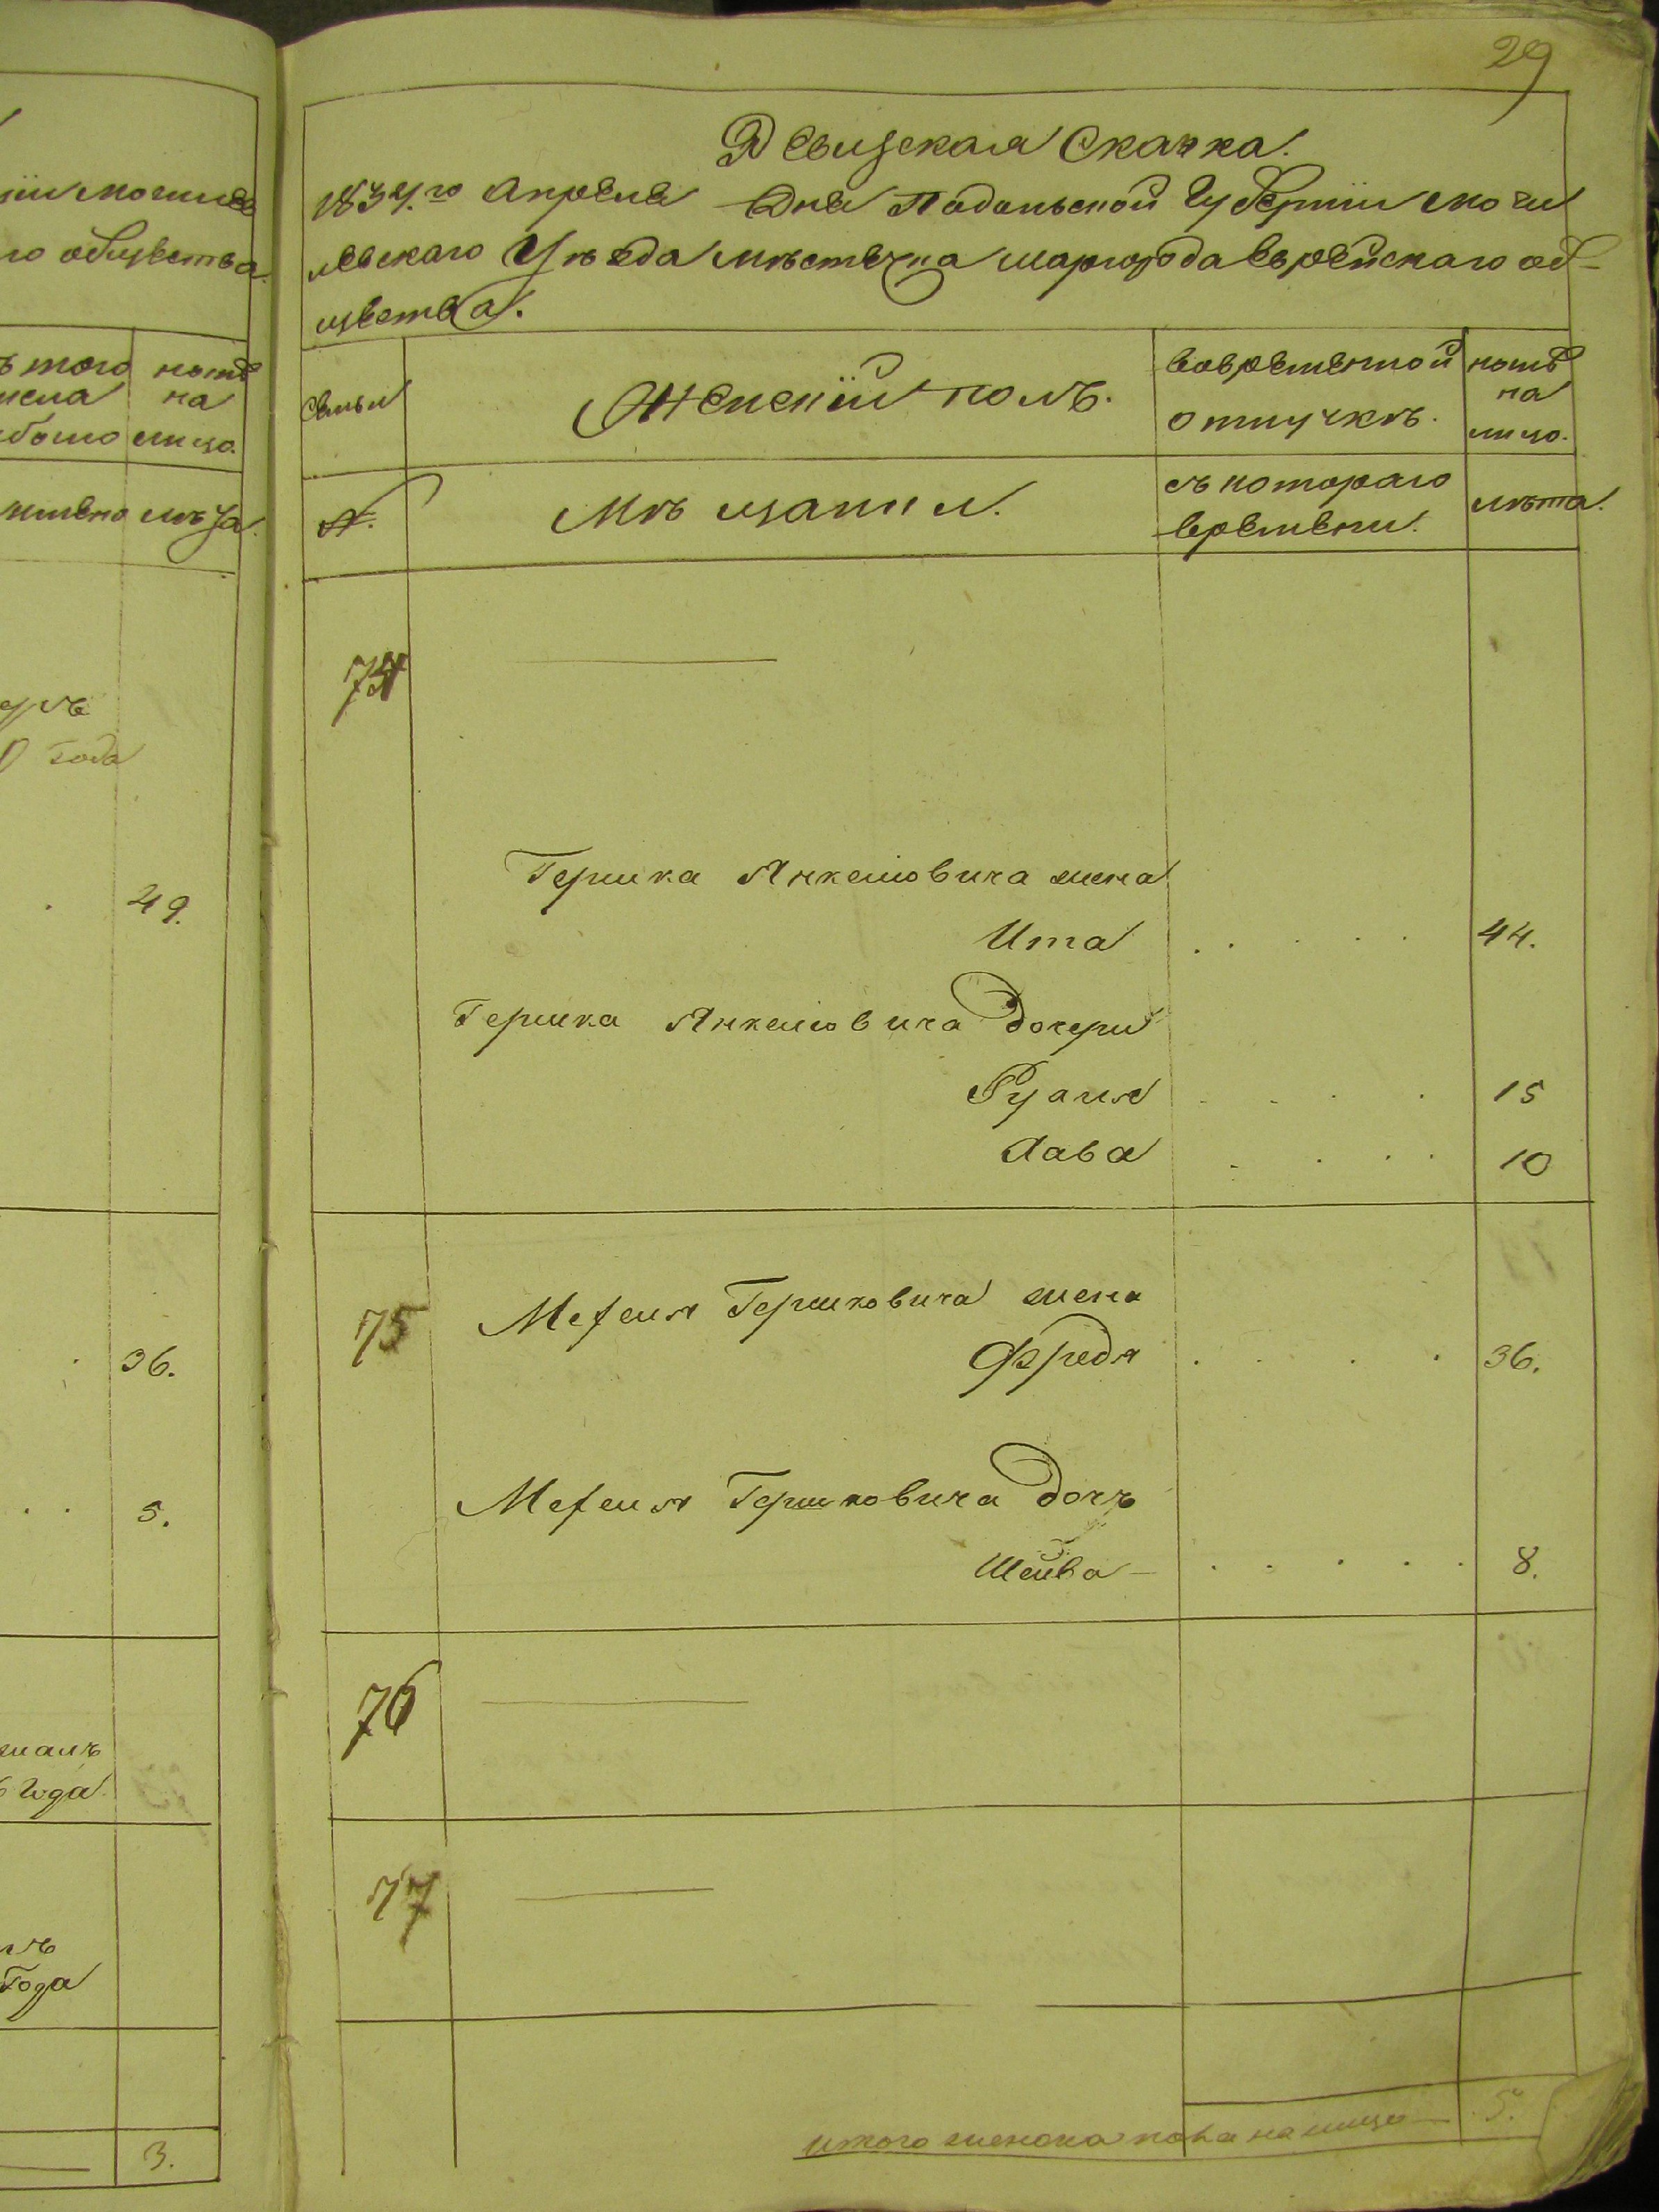 29
Ревизская Скачка.
1834.го апреля Дня Падольской Губернии моги
левского Уѣзда мѣстечка шаргорода Еврейскаго об-
щества.
Семьи
Женскій полъ.
вовременной
отлучкѣ.
нынѣ
на
лицо.
№.
Мѣщанки.
съ котораго
времени.
лѣта.
74
Гершка Янкелювича жена
Ита 44.
Гершка Янкелювича дочери
Рухля 15
Хава 10
75
Мехеля Гершковича жена
Фредя 36.
Мехеля Гершковича дочь
Шейва 8.
76
77
итого женска пола на лицо 5.
общества
того
нынѣ
на
лицо.
лѣта.
года
49.
36.
5.
года
Года
3.